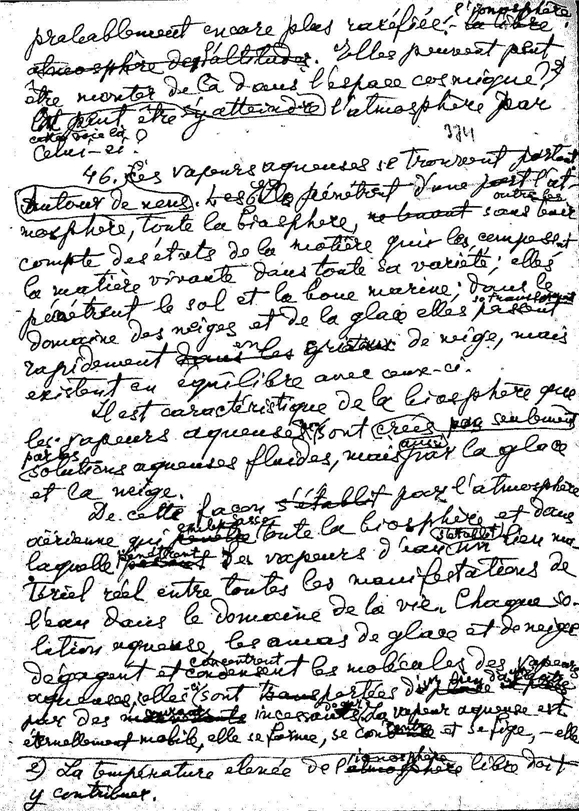 l'ionosphère
probablement encore plus raréfiée – la libre
atmosphère des altitudes. Elles peuvent peut
être monter de là dans l'espace cosmique? 2)
Et peut être y atteindre l'atmosphère par
cette voie là
celui-ci?
46. Les vapeurs aqueuses se trouvent partout
autour de nous. pénétrent d'une part l'at-
outre les
mosphère, toute la biosphère, ne tenant sans tenir
compte des états de la matière qui les composent
la matière vivante dans toute sa variété; elles
pénétrent le sol et la boue marine; dans le
domaine des neiges et de la glace elles passent
se transforment
rapidement dans les cristaux de neige, mais
en
existent en équilibre avec ceux-ci.
Il est caractéristique de la biosphère que
les vapeurs aqueuses sont créés seulement
par les
solutions aqueuses fluides, mais aussi par la glace
et la neige.
De cette façon s'établit par l'atmosphère
aérienne qui embrasse toute la biosphère et dans
laquelle pénétrent des vapeurs d'eau s'établit un lien ma-
tériel réel entre toutes les manifestations de
l'eau dans le domaine de la vie. Chaque so-
lution aqueuse, les amas de glace et de neige
dégagent et condensent les molécules des vapeurs
concentrent
aqueuses, elles sont transportées
par des incessants. La vapeur aqueuse est
éternellement mobile, elle se forme, se et se fige, – elle
2) La température elevée de l'ionosphère
atmosphère libre doit
y contribuer.